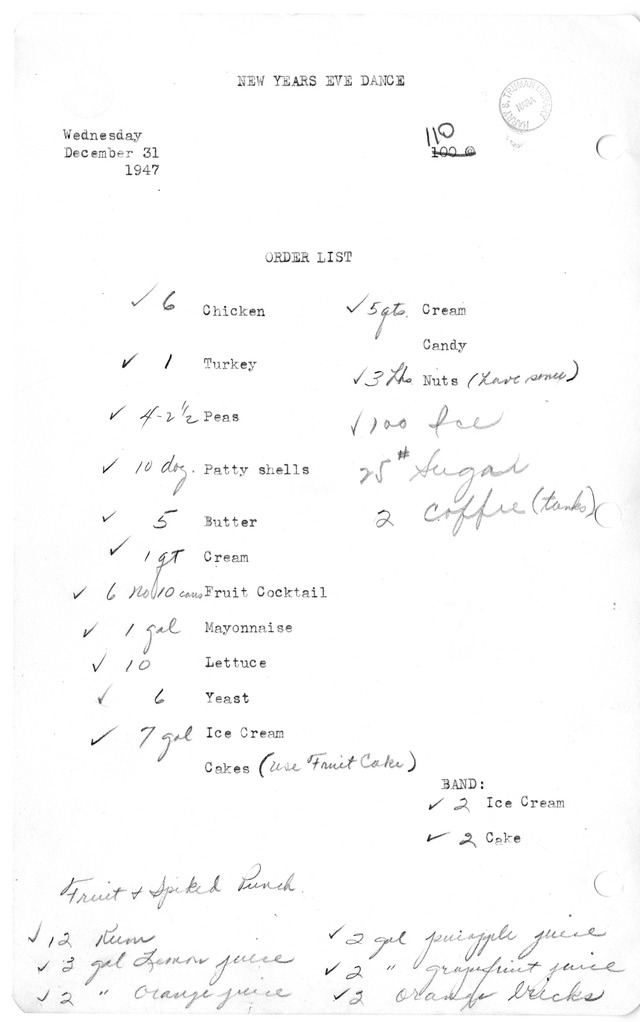 NEW YEARS EVE DANCE
HARRY S. TRUMAN LIBRARY
Wednesday
December 31
1947
110
100 @
ORDER LIST
✓ 6 Chicken
✓ 1 Turkey
✓ 4-2½ Peas
✓ 10 doz. Patty shells
✓ 5 Butter
✓ 1 qt Cream
✓ 6 no 10 cans Fruit Cocktail
✓ 1 gal Mayonnaise
✓ 10 Lettuce
✓ 6 Yeast
✓ 7 gal Ice Cream
Cakes (use Fruit Cake)
✓ 5 qts. Cream
Candy
✓ 3 lbs Nuts (have some)
✓ 100 Ice
25 # Sugar
2 Coffee (tanks)
BAND:
✓ 2 Ice Cream
✓ 2 Cake
Fruit + Spiked Punch.
✓ 12 Rum
✓ 3 gal Lemon juice
✓ 2 " orange juice
✓ 2 gal pineapple juice
✓ 2 " grapefruit juice
✓ 2 orange bricks